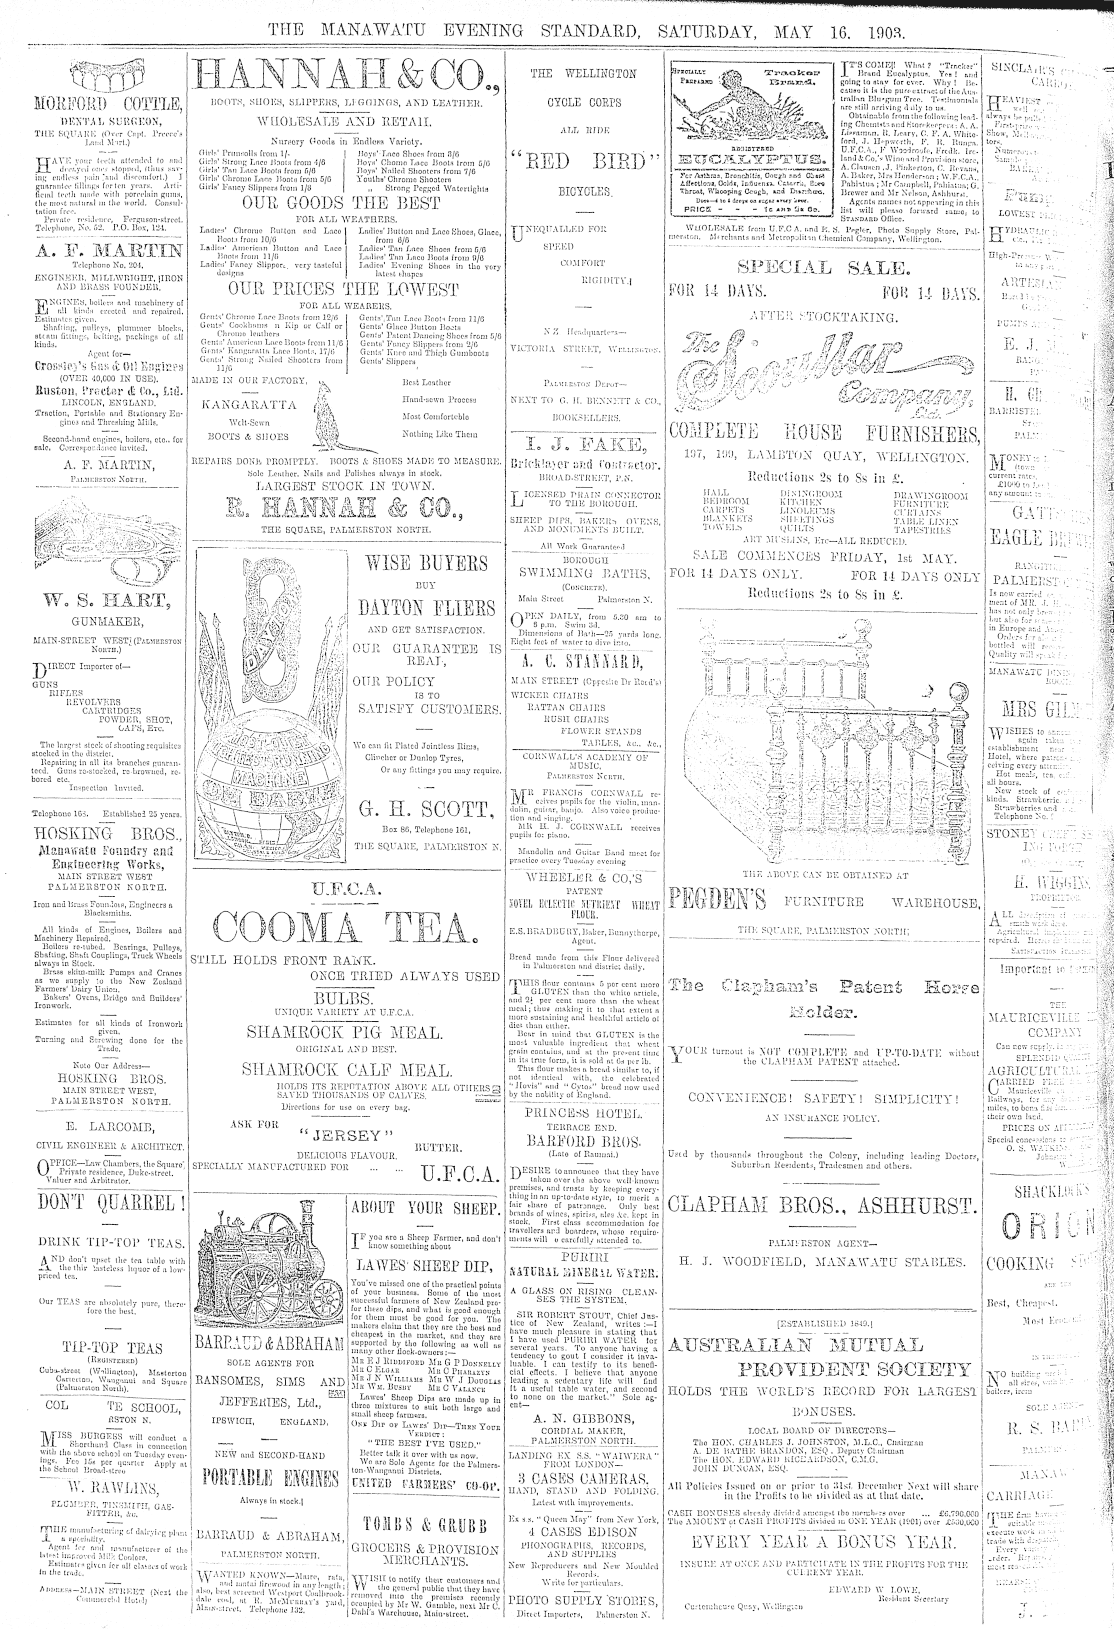 THE MANAWATU EVENING STANDARD, SATURDAY, MAY 16. 1903.
MORFORD COTTLE,
DENTAL SURGEON,
THE SQUARE (Over Capt. Preece's
Land Mart.)
HAVE your teeth attended to and
decayed ones stopped, thus sav-
ing endless pain and discomfort. I
guarantee fillings for ten years. Arti-
ficial teeth made with porcelain gums,
the most natural in the world. Consul-
tation free.
Private residence, Ferguson-street.
Telephone, No. 52. P.O. Box, 124.
A. F. MARTIN
Telephone No. 204,
ENGINEER, MILLWRIGHT, IRON
AND BRASS FOUNDER.
ENGINES, boilers and machinery of
all kinds erected and repaired.
Estimates given.
Shafting, pulleys, plummer blocks,
steam fittings, belting, packings of all
kinds.
Agent for—
Crossley's Gas & Oil Engines
(OVER 40,000 IN USE).
Ruston, Proctor & Co., Ltd.
LINCOLN, ENGLAND.
Traction, Portable and Stationary En-
gines and Threshing Mills.
Second-hand engines, boilers, etc., for
sale. Correspondence invited.
A. F. MARTIN,
PALMERSTON NORTH.
W. S. HART,
GUNMAKER,
MAIN-STREET WEST, (PALMERSTON
NORTH.)
DIRECT Importer of—
GUNS
RIFLES
REVOLVERS
CARTRIDGES
POWDER, SHOT,
CAPS, ETC.
The largest stock of shooting requisites
stocked in the district.
Repairing in all its branches guaran-
teed. Guns re-stocked, re-browned, re-
bored etc.
Inspection Invited.
Telephone 168. Established 25 years.
HOSKING BROS.,
Manawatu Foundry and
Engineering Works,
MAIN STREET WEST
PALMERSTON NORTH.
Iron and Brass Founders, Engineers &
Blacksmiths.
All kinds of Engines, Boilers and
Machinery Repaired.
Boilers re-tubed. Bearings, Pulleys,
Shafting, Shaft Couplings, Truck Wheels
always in Stock.
Brass skim-milk Pumps and Cranes
as we supply to the New Zealand
Farmers' Dairy Union.
Bakers' Ovens, Bridge and Builders'
Ironwork.
Estimates for all kinds of Ironwork
given.
Turning and Screwing done for the
Trade.
Note Our Address—
HOSKING BROS.
MAIN STREET WEST,
PALMERSTON NORTH.
E. LARCOMB,
CIVIL ENGINEER & ARCHITECT.
OFFICE—Law Chambers, the Square.
Private residence, Duke-street.
Valuer and Arbitrator.
DON'T QUARREL!
DRINK TIP-TOP TEAS.
AND don't upset the tea table with
the thin tasteless liquor of a low-
priced tea.
Our TEAS are absolutely pure, there-
fore the best.
TIP-TOP TEAS
(REGISTERED)
Cuba-street (Wellington), Masterton
Carterton, Wanganui and Square
(Palmerston North).
COL TE SCHOOL,
RSTON N.
MISS BURGESS will conduct a
Shorthand Class in connection
with the above school on Tuesday even-
ings. Fee 15s per quarter Apply at
the School Broad-stree
W. RAWLINS,
PLUMBER, TINSMITH, GAS-
FITTER, &c.
THE manufacturing of dairying plant
a speciality.
Agent for and manufacturer of the
latest improved Milk Coolers.
Estimates given for all classes of work
in the trade.
ADDRESS—MAIN STREET (Next the
Commercial Hotel)
HANNAH & CO.,
BOOTS, SHOES, SLIPPERS, LEGGINGS, AND LEATHER.
WHOLESALE AND RETAIL.
Nursery Goods in Endless Variety.
Girls' Prunsolls from 1/-
Girls' Strong Lace Boots from 4/6
Girls' Tan Lace Boots from 5/6
Girls' Chrome Lace Boots from 5/6
Girls' Fancy Slippers from 1/8
Boys' Lace Shoes from 3/6
Boys' Chome Lace Boots from 5/6
Boys' Nailed Shooters from 7/6
Youths' Chrome Shooters
„ Strong Pegged Watertights
OUR GOODS THE BEST
FOR ALL WEATHERS.
Ladies' Chrome Button and Lace
Boots from 10/6
Ladies' American Button and Lace
Boots from 11/6
Ladies' Fancy Slippers, very tasteful
designs
Ladies' Button and Lace Shoes, Glace,
from 6/6
Ladies' Tan Lace Shoes from 5/6
Ladies' Tan Lace Boots from 9/6
Ladies' Evening Shoes in the very
latest shapes
OUR PRICES THE LOWEST
FOR ALL WEARERS.
Gents' Chrome Lace Boots from 12/6
Gents' Cookhams in Kip or Calf or
Chrome leathers
Gents' American Lace Boots from 11/6
Gents' Kangaratta Lace Boots, 17/6
Gents' Strong Nailed Shooters from
11/6
Gents' Tan Lace Boots from 11/6
Gents' Glace Button Boots
Gents' Patent Dancing Shoes from 5/6
Gents' Fancy Slippers from 2/6
Gents' Knee and Thigh Gumboots
Gents' Slippers
MADE IN OUR FACTORY.
KANGARATTA
Welt-Sewn
BOOTS & SHOES
Best Leather
Hand-sewn Process
Most Comfortable
Nothing Like Them
REPAIRS DONE PROMPTLY. BOOTS & SHOES MADE TO MEASURE.
Sole Leather. Nails and Polishes always in stock.
LARGEST STOCK IN TOWN.
R. HANNAH & CO.,
THE SQUARE, PALMERSTON NORTH.
WISE BUYERS
BUY
DAYTON FLIERS
AND GET SATISFACTION.
OUR GUARANTEE IS
REAL,
OUR POLICY
IS TO
SATISFY CUSTOMERS.
We can fit Plated Jointless Rims,
Clincher or Dunlop Tyres,
Or any fittings you may require.
G. H. SCOTT,
Box 86, Telephone 161,
THE SQUARE, PALMERSTON N.
U.F.C.A.
COOMA TEA.
STILL HOLDS FRONT RANK.
ONCE TRIED ALWAYS USED
BULBS.
UNIQUE VARIETY AT U.F.C.A.
SHAMROCK PIG MEAL.
ORIGINAL AND BEST.
SHAMROCK CALF MEAL.
HOLDS ITS REPUTATION ABOVE ALL OTHERS
SAVED THOUSANDS OF CALVES.
Directions for use on every bag.
ASK FOR
"JERSEY"
BUTTER.
DELICIOUS FLAVOUR.
SPECIALLY MANUFACTURED FOR ... ...
U.F.C.A.
BARRAUD & ABRAHAM
SOLE AGENTS FOR
RANSOMES, SIMS AND
JEFFERIES, Ltd.,
IPSWICH, ENGLAND.
NEW and SECOND-HAND
PORTABLE ENGINES
Always in stock.
BARRAUD & ABRAHAM,
PALMERSTON NORTH.
WANTED KNOWN—Maire, rata,
and matai firewood in any length;
also, best screened Westport Coalbrook-
dale coal, at E. McMURRAY'S yard,
Main-street. Telephone 132.
ABOUT YOUR SHEEP.
IF you are a Sheep Farmer, and don't
know something about
LAWES' SHEEP DIP,
You've missed one of the practical points
of your business. Some of the most
successful farmers of New Zealand pro-
fer these dips, and what is good enough
for them must be good for you. The
makers claim that they are the best and
cheapest in the market, and they are
supported by the following as well as
many other flock-owners:—
MR E J RIDDIFORD MR G P DONNELLY
MR C ELGAR MR C PHARAZYN
MR J N WILLIAMS MR W J DOUGLAS
MR WM. BUSBY MR C VALANCE
Lawes' Sheep Dips are made up in
three mixtures to suit both large and
small sheep farmers.
ONE DIP OF LAWES' DIP—THEN YOUR
VERDICT:
"THE BEST I'VE USED."
Better talk it over with us now.
We are Sole Agents for the Palmers-
ton-Wanganui Districts.
UNITED FARMERS' CO-OP.
TOMBS & GRUBB
GROCERS & PROVISION
MERCHANTS.
WISH to notify their customers and
the general public that they have
removed into the premises recently
occupied by Mr W. Gamble, next Mr C.
Dahl's Warehouse, Main-street.
THE WELLINGTON
CYCLE CORPS
ALL RIDE
"RED BIRD"
BICYCLES.
UNEQUALLED FOR
SPEED
COMFORT
RIGIDITY.
N.Z Headquarters—
VICTORIA STREET, WELLINGTON.
PALMERSTON DEPOT—
NEXT TO G. H. BENNETT & CO.,
BOOKSELLERS.
I. J. FAKE,
Bricklayer and Contractor.
BROAD-STREET, P.N.
LICENSED DRAIN CONNECTOR
TO THE BOROUGH.
SHEEP DIPS, BAKERS OVENS,
AND MONUMENTS BUILT.
All Work Guaranteed
BOROUGH
SWIMMING BATHS,
(CONCRETE).
Main Street Palmerston N.
OPEN DAILY, from 5.30 am to
8 p.m. Swim 3d.
Dimensions of Bath—25 yards long.
Eight feet of water to dive into.
A. C. STANNARD,
MAIN STREET (Opposite Dr Reed's)
WICKER CHAIRS
RATTAN CHAIRS
RUSH CHAIRS
FLOWER STANDS
TABLES, &c., &c.,
CORNWALL'S ACADEMY OF
MUSIC.
PALMERSTON NORTH.
MR FRANCIS CORNWALL re-
ceives pupils for the violin, man-
dolin, guitar, banjo. Also voice produc-
tion and singing.
MR H. J. CORNWALL receives
pupils for piano.
Mandolin and Guitar Band meet for
practice every Tuesday evening
WHEELER & CO,'S
PATENT
NOVEL ECLECTIC NUTRIENT WHEAT
FLOUR.
E.S. BRADBURY, Baker, Bunnythorpe,
Agent.
Bread made from this Flour delivered
in Palmerston and district daily.
THIS flour contains 5 per cent more
GLUTEN than the white article,
and 2½ per cent more than the wheat
meal; thus making it to that extent a
more sustaining and healthful article of
diet than either.
Bear in mind that GLUTEN is the
most valuable ingredient that wheat
grain contains, and at the present time
in its true form, it is sold at 6s per lb.
This flour makes a bread similar to, if
not identical with, the celebrated
"Hovis" and "Cytos" bread now used
by the nobility of England.
PRINCESS HOTEL.
TERRACE END.
BARFORD BROS.
(Late of Raumai.)
DESIRE to announce that they have
taken over the above well-known
premises, and trusts by keeping every-
thing in an up-to-date style, to merit a
fair share of patronage. Only best
brands of wines, spirits, ales &c. kept in
stock. First class accommodation for
travellers and boarders, whose require-
ments will be carefully attended to.
PURIRI
NATURAL MINERAL WATER.
A GLASS ON RISING CLEAN-
SES THE SYSTEM.
SIR ROBERT STOUT, Chief Jus-
tice of New Zealand, writes:—I
have much pleasure in stating that
I have used PURIRI WATER for
several years. To anyone having a
tendency to gout I consider it inva-
luable. I can testify to its benefi-
cial effects. I believe that anyone
leading a sedentary life will find
it a useful table water, and second
to none on the market." Sole ag-
ent—
A. N. GIBBONS,
CORDIAL MAKER,
PALMERSTON NORTH.
LANDING EX S.S. "WAIWERA"
FROM LONDON—
3 CASES CAMERAS.
HAND, STAND AND FOLDING.
Latest with improvements.
Ex s.s. "Queen May" from New York,
4 CASES EDISON
PHONOGRAPHS, RECORDS,
AND SUPPLIES
New Reproducers and New Moulded
Records.
Write for particulars.
PHOTO SUPPLY STORES,
Direct Importers, Palmerston N.
SPECIALLY
PREPARED
Tracker
Brand.
REGISTERED
EUCALYPTUS.
For Asthma, Bronchitis, Cough and Chest
Affections, Colds, Influenza, Catarrh, Sore
Throat, Whooping Cough, and Diarrhœa.
PRICE
IT'S COME!! What? "Tracker"
Brand Eucalyptus. Yes! and
going to stay for ever. Why? Be-
cause it is the pure extract of the Aus-
tralian Bluegum Tree. Testimonials
are still arriving daily to us.
Obtainable from the following lead-
ing Chemists and Storekeepers: A. A.
Lissaman, R. Leary, C. F. A. White-
ford, J. Hepworth, F. R. Bunga,
U.F.C.A., F Woodroofe, Fredk. Ire-
land & Co.'s Wine and Provision store,
A. Clausen, J. Pinkerton, C. Bevans,
A. Baker, Mrs Henderson; W.F.C.A.,
Pahiatua; Mr Campbell, Pahiatua; G.
Brewer and Mr Nelson, Ashhurst.
Agents names not appearing in this
list will please forward same, to
STANDARD Office.
WHOLESALE from U.F.C.A. and R. S. Pegler, Photo Supply Store, Pal-
merston. Merchants and Metropolitan Chemical Company, Wellington.
SPECIAL SALE.
FOR 14 DAYS. FOR 14 DAYS.
AFTER STOCKTAKING.
The
Scoullar
Company,
Ltd.
COMPLETE HOUSE FURNISHERS,
197, 199, LAMBTON QUAY, WELLINGTON.
Reductions 2s to 8s in £.
HALL DININGROOM DRAWINGROOM
BEDROOM KITCHEN FURNITURE
CARPETS LINOLEUMS CURTAINS
BLANKETS SHEETINGS TABLE LINEN
TOWELS QUILTS TAPESTRIES
ART MUSLINS, Etc—ALL REDUCED.
SALE COMMENCES FRIDAY, 1st MAY.
FOR 14 DAYS ONLY. FOR 14 DAYS ONLY
Reductions 2s to 8s in £.
THE ABOVE CAN BE OBTAINED AT
PEGDEN'S FURNITURE WAREHOUSE,
THE SQUARE, PALMERSTON NORTH.
The Clapham's Patent Horse
Holder.
YOUR turnout is NOT COMPLETE and UP-TO-DATE without
the CLAPHAM PATENT attached.
CONVENIENCE! SAFETY! SIMPLICITY!
AN INSURANCE POLICY.
Used by thousands throughout the Colony, including leading Doctors,
Suburban Residents, Tradesmen and others.
CLAPHAM BROS., ASHHURST.
PALMERSTON AGENT—
H. J. WOODFIELD, MANAWATU STABLES.
[ESTABLISHED 1849.]
AUSTRALIAN MUTUAL
PROVIDENT SOCIETY
HOLDS THE WORLD'S RECORD FOR LARGEST
BONUSES.
LOCAL BOARD OF DIRECTORS—
The HON. CHARLES J. JOHNSTON, M.L.C., Chairman
A. DE BATHE BRANDON, ESQ., Deputy Chairman
The HON. EDWARD RICHARDSON, C.M.G.
JOHN DUNCAN, ESQ.
All Policies Issued on or prior to 31st December Next will share
in the Profits to be divided as at that date.
CASH BONUSES already divided amongst the members over ... £6,790,000
The AMOUNT of CASH PROFITS divided in ONE YEAR (1901) over £530,000
EVERY YEAR A BONUS YEAR.
INSURE AT ONCE AND PARTICIPATE IN THE PROFITS FOR THE
CURRENT YEAR.
EDWARD W LOWE,
Resident Secretary
Customhouse Quay, Wellington
SINCLAIR'S
HEAVIEST
LOWEST
HYDRAULIC
ARTESIAN
E. J.
BARRISTER
MONEY
EAGLE
PALMERST
Is now carried
ment of MR. J.
has not only
but also for
in Europe and
Orders for
bottled will
Quality will
MANAWATU
MRS GIL
WISHES to
again
establishment
Hotel, where
ceiving every
Hot meals, tea
all hours.
New stock of
kinds. Strawberries
Strawberries and
Telephone No.
STONEY
H. WIGGINS
PROPRIETOR
ALL
repaired.
Important to
THE
MAURICEVILLE
COMPANY
Can now supply
SPLENDID
AGRICULTURAL
CARRIED FREE
Mauriceville
Railways, for any
miles, to bona fide
their own land.
PRICES ON
Special concessions
O. S. WATKINS
SHACKLOCK'S
ORION
COOKING
Best, Cheapest.
Most
NO building
all sizes,
boilers, iron
SOLE
R. S.
CARRIAGE
THE firm
execute work
trade with
Every